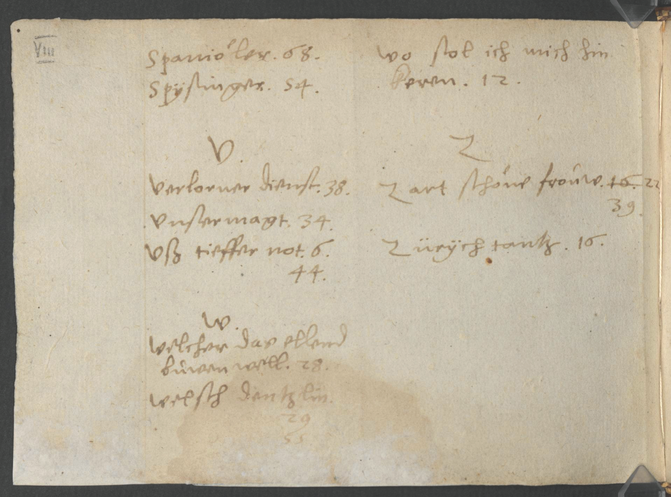 VIII
Spaniöler. 68.
Spÿsinger. 54.
V.
Verlorner dienst. 38.
Vnser magt. 34.
Vß tieffer not. 6.
44.
W.
Welcher das ellend
buwen well. 28.
Welsch dentzlin.
29
55
wo sol ich mich hin
keren. 12.
Z
Zart schöne frouw. 16. 22
39.
Zürÿch tantz. 16.